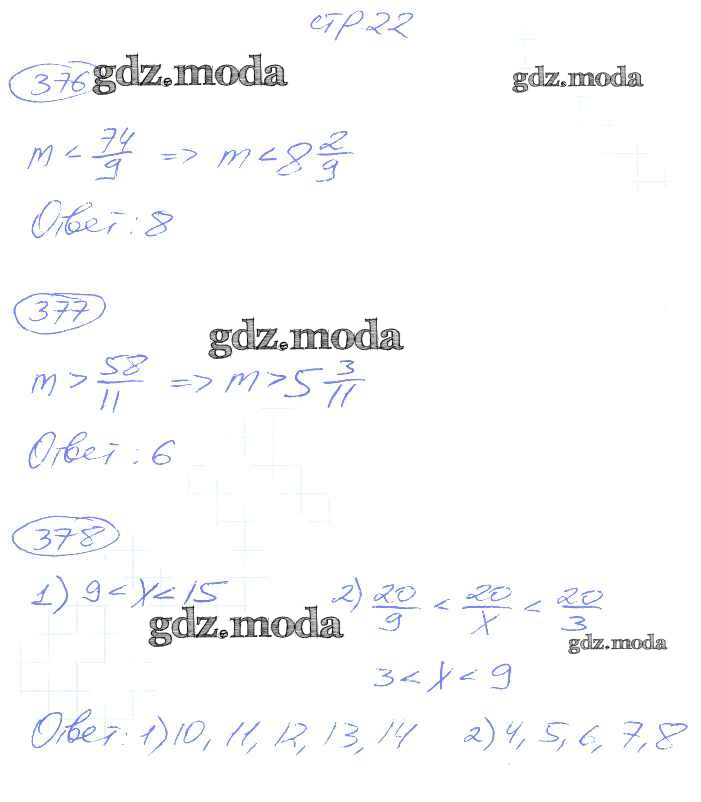 стр.22
376 gdz.moda gdz.moda
m < 74/9 => m < 8 2/9
Ответ: 8
377
gdz.moda
m > 58/11 => m > 5 3/11
Ответ: 6
378
1) 9 < x < 15 2) 20/9 < 20/x < 20/3
gdz.moda gdz.moda
3 < x < 9
Ответ: 1) 10, 11, 12, 13, 14 2) 4, 5, 6, 7, 8